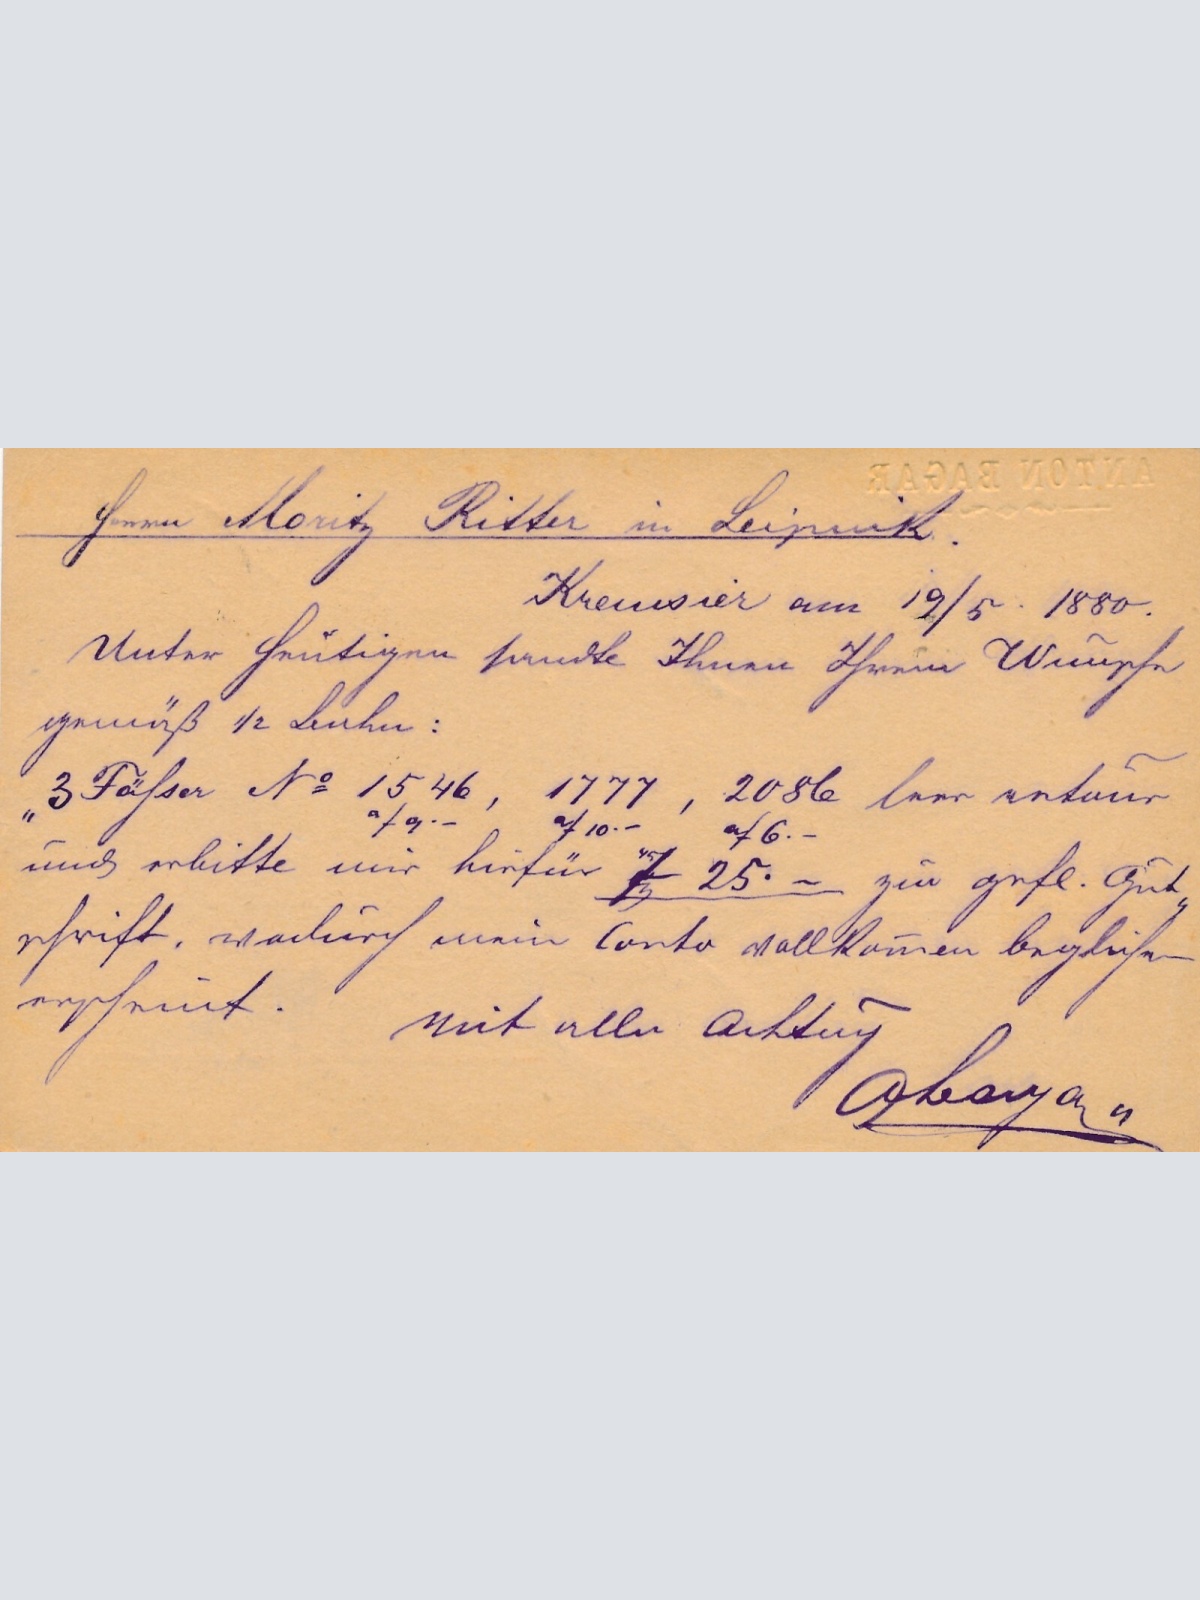 ANTON BAGAR
Herrn Moritz Ritter in Leipnik.
Kremsier am 19/5. 1880.
Unter Heutigen sandte Ihnen Ihrem Wunsche
gemäß p. Bahn:
"3 Fässer № 1546, 1777, 2086 leer retour
a f 9.– a f 10.– a f 6.–
und erbitte mir hiefür f 25.– zur gefl. Gut„
schrift, wodurch mein Conto vollkom̅en beglichen
erscheint.
Mit aller Achtung
ABagar